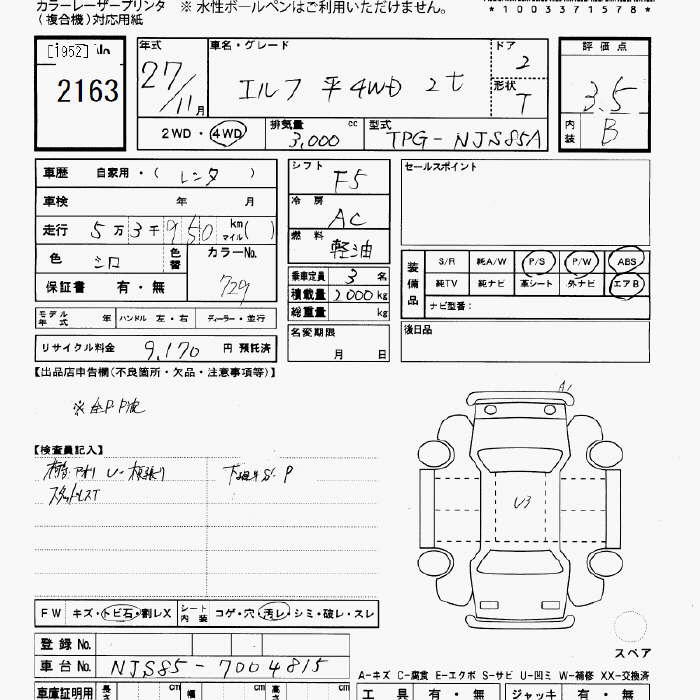 カラーレーザープリンタ ※ 水性ボールペンはご利用いただけません。
(複合機)対応用紙
*1003371578*
[1952]
2163
年式
27/11月
車名・グレード
エルフ 平4WD 2t
ドア
2
形状
T
評価点
3.5
内装
B
2WD・4WD
排気量
3,000 cc
型式
TPG-NJS85A
車歴 自家用・(レンタ)
車検 年 月
走行 5万3千950 km マイル( )
色 シロ 色替
カラーNo.
729
保証書 有・無
モデル年式 年 ハンドル 左・右 ディーラー・並行
リサイクル料金 9,170 円 預託済
シフト
F5
冷房
AC
燃料
軽油
乗車定員 3名
積載量 2000kg
総重量 kg
名変期限
月 日
セールスポイント
装備品
S/R 純A/W P/S P/W ABS
純TV 純ナビ 革シート 外ナビ エアB
ナビ型番:
後日品
【出品店申告欄(不良箇所・欠品・注意事項等)】
【検査員記入】
A1
U3
FW キズ・トビ石・割レX シート内装 コゲ・穴・汚レ・シミ・破レ・スレ
スペア
登録No.
車台No. NJS85-7004815
A-キズ C-腐食 E-エクボ S-サビ U-凹ミ W-補修 XX-交換済
車庫証明用 長さ cm 幅 cm 高さ cm
工具 有・無 ジャッキ 有・無